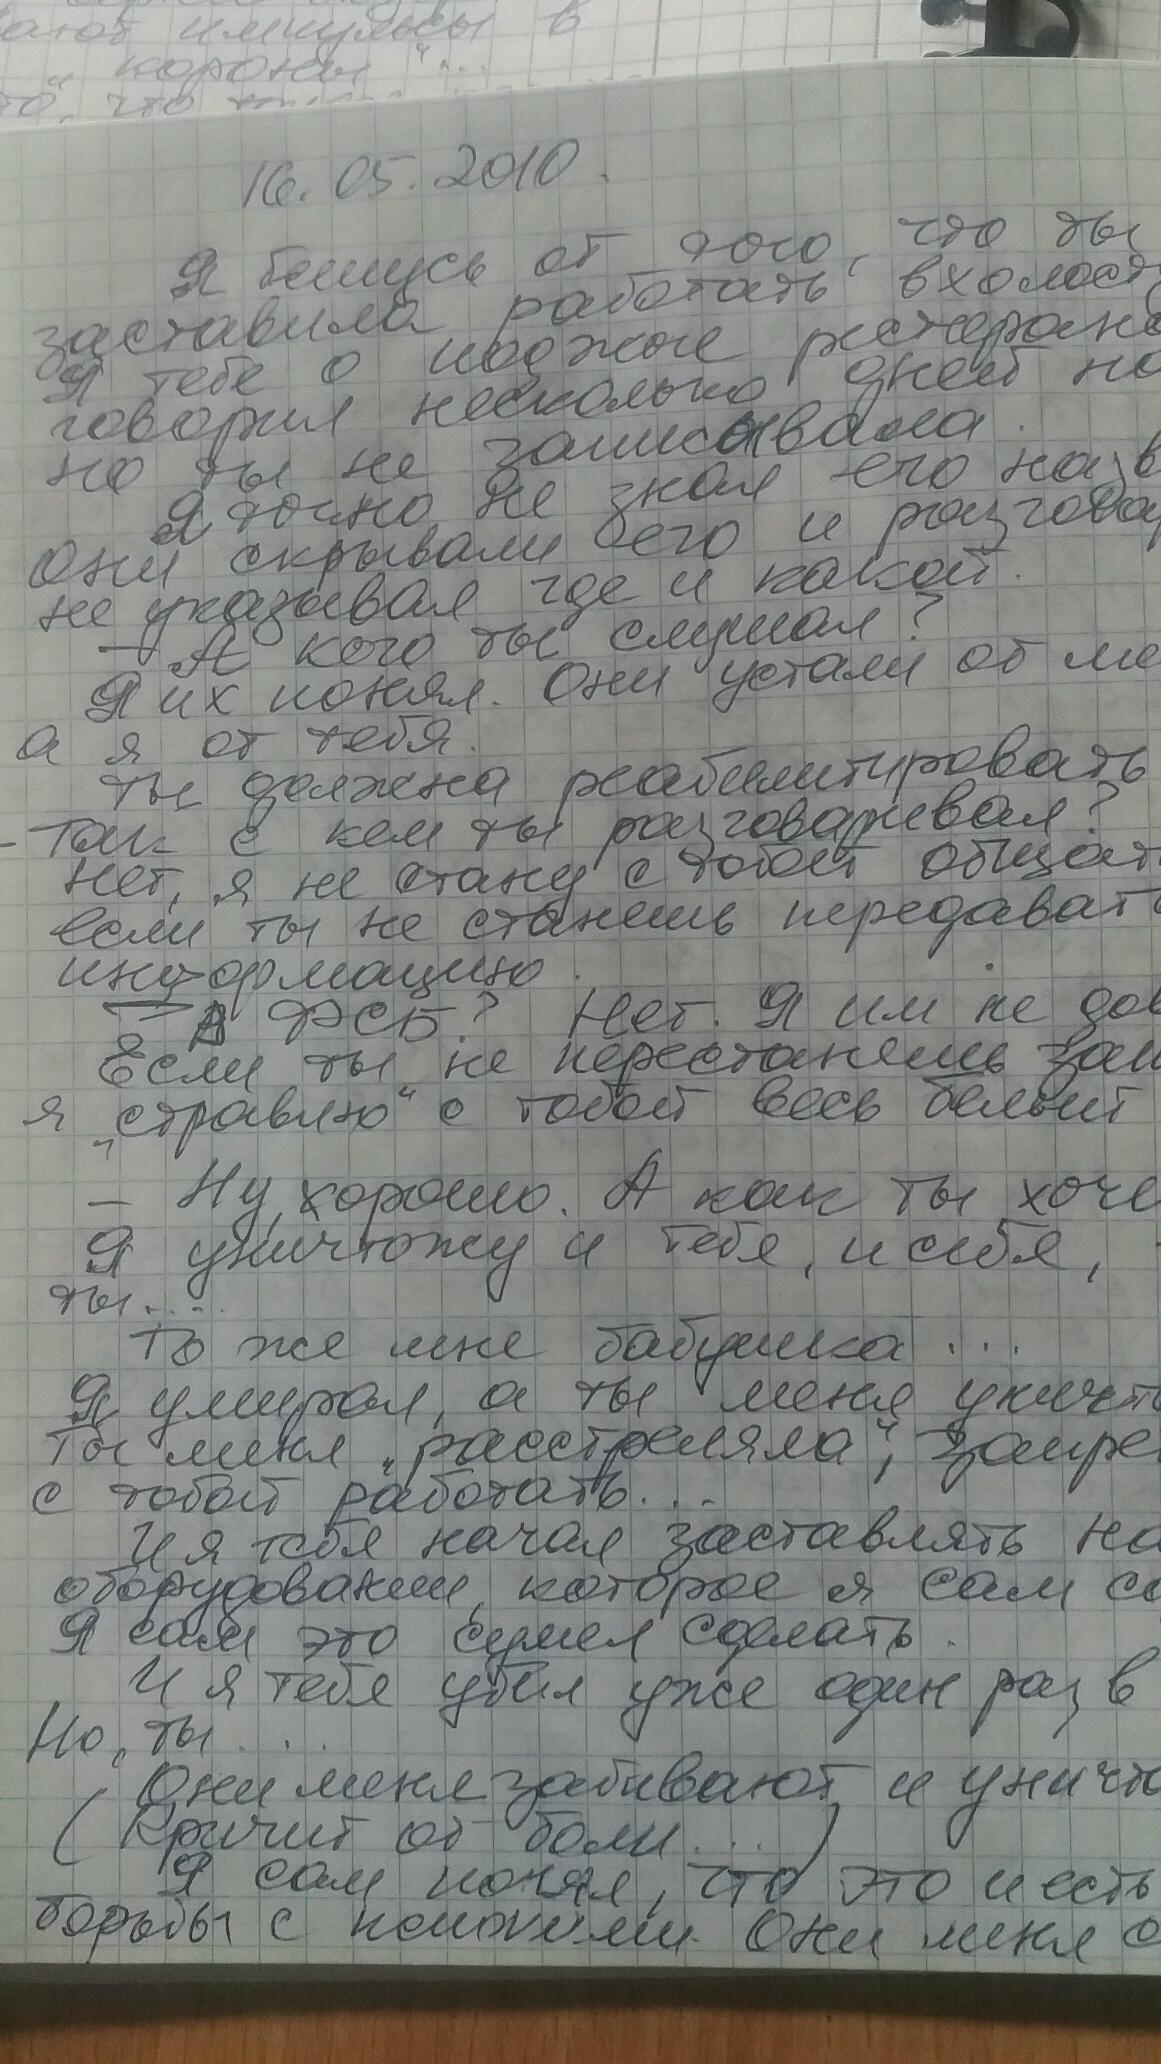 импульсы в
короны"...
что
16.05.2010.
Я бешусь от того, что ты
заставила работать вхолост
Я тебе о поджоге ресторана
говорил несколько дней на
но ты не записывала.
Я точно не знал его назв
Они скрывали его и разговар
не указывал где и какой.
– А кого ты слушал?
Я их понял. Они устали от ме
а я от тебя.
Ты должна реабилитировать
– Так с кем ты разговаривал?
Нет, я не стану с тобой общат
если ты не станешь передавать
информацию.
– В ФСБ? Нет. Я им не дов
Если ты не перестанешь зап
я „стравлю" с тобой весь белый
– Ну, хорошо. А как ты хоче
Я уничтожу и тебя, и себя,
ты....
То же мне бабушка ...
Я умирал, а ты меня уничто
Ты меня „расстреляла", запре
с тобой работать...
И я тебя начал заставлять на
оборудовании, которое я сам со
Я сам это сумел сделать.
И я тебя убил уже один раз в
Но, ты ....
Они меня забивают и уничто
(Кричит от боли ...)
Я сам понял, что это и есть
борьбы с Они меня с